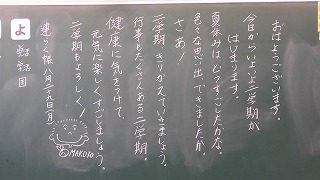 おはようございます。
今日からいよいよ二学期が
はじまります。
夏休みはどうすごしたかな。
色々な思い出できましたか。
さあ！
二学期きりかえていきましょう。
行事もたくさんある二学期。
健康に気をつけて、
元気に楽しくすごしましょう。
二学期もよろしく！
MAKOTO
連らく帳八月二十九日(月)
よ
学活
国